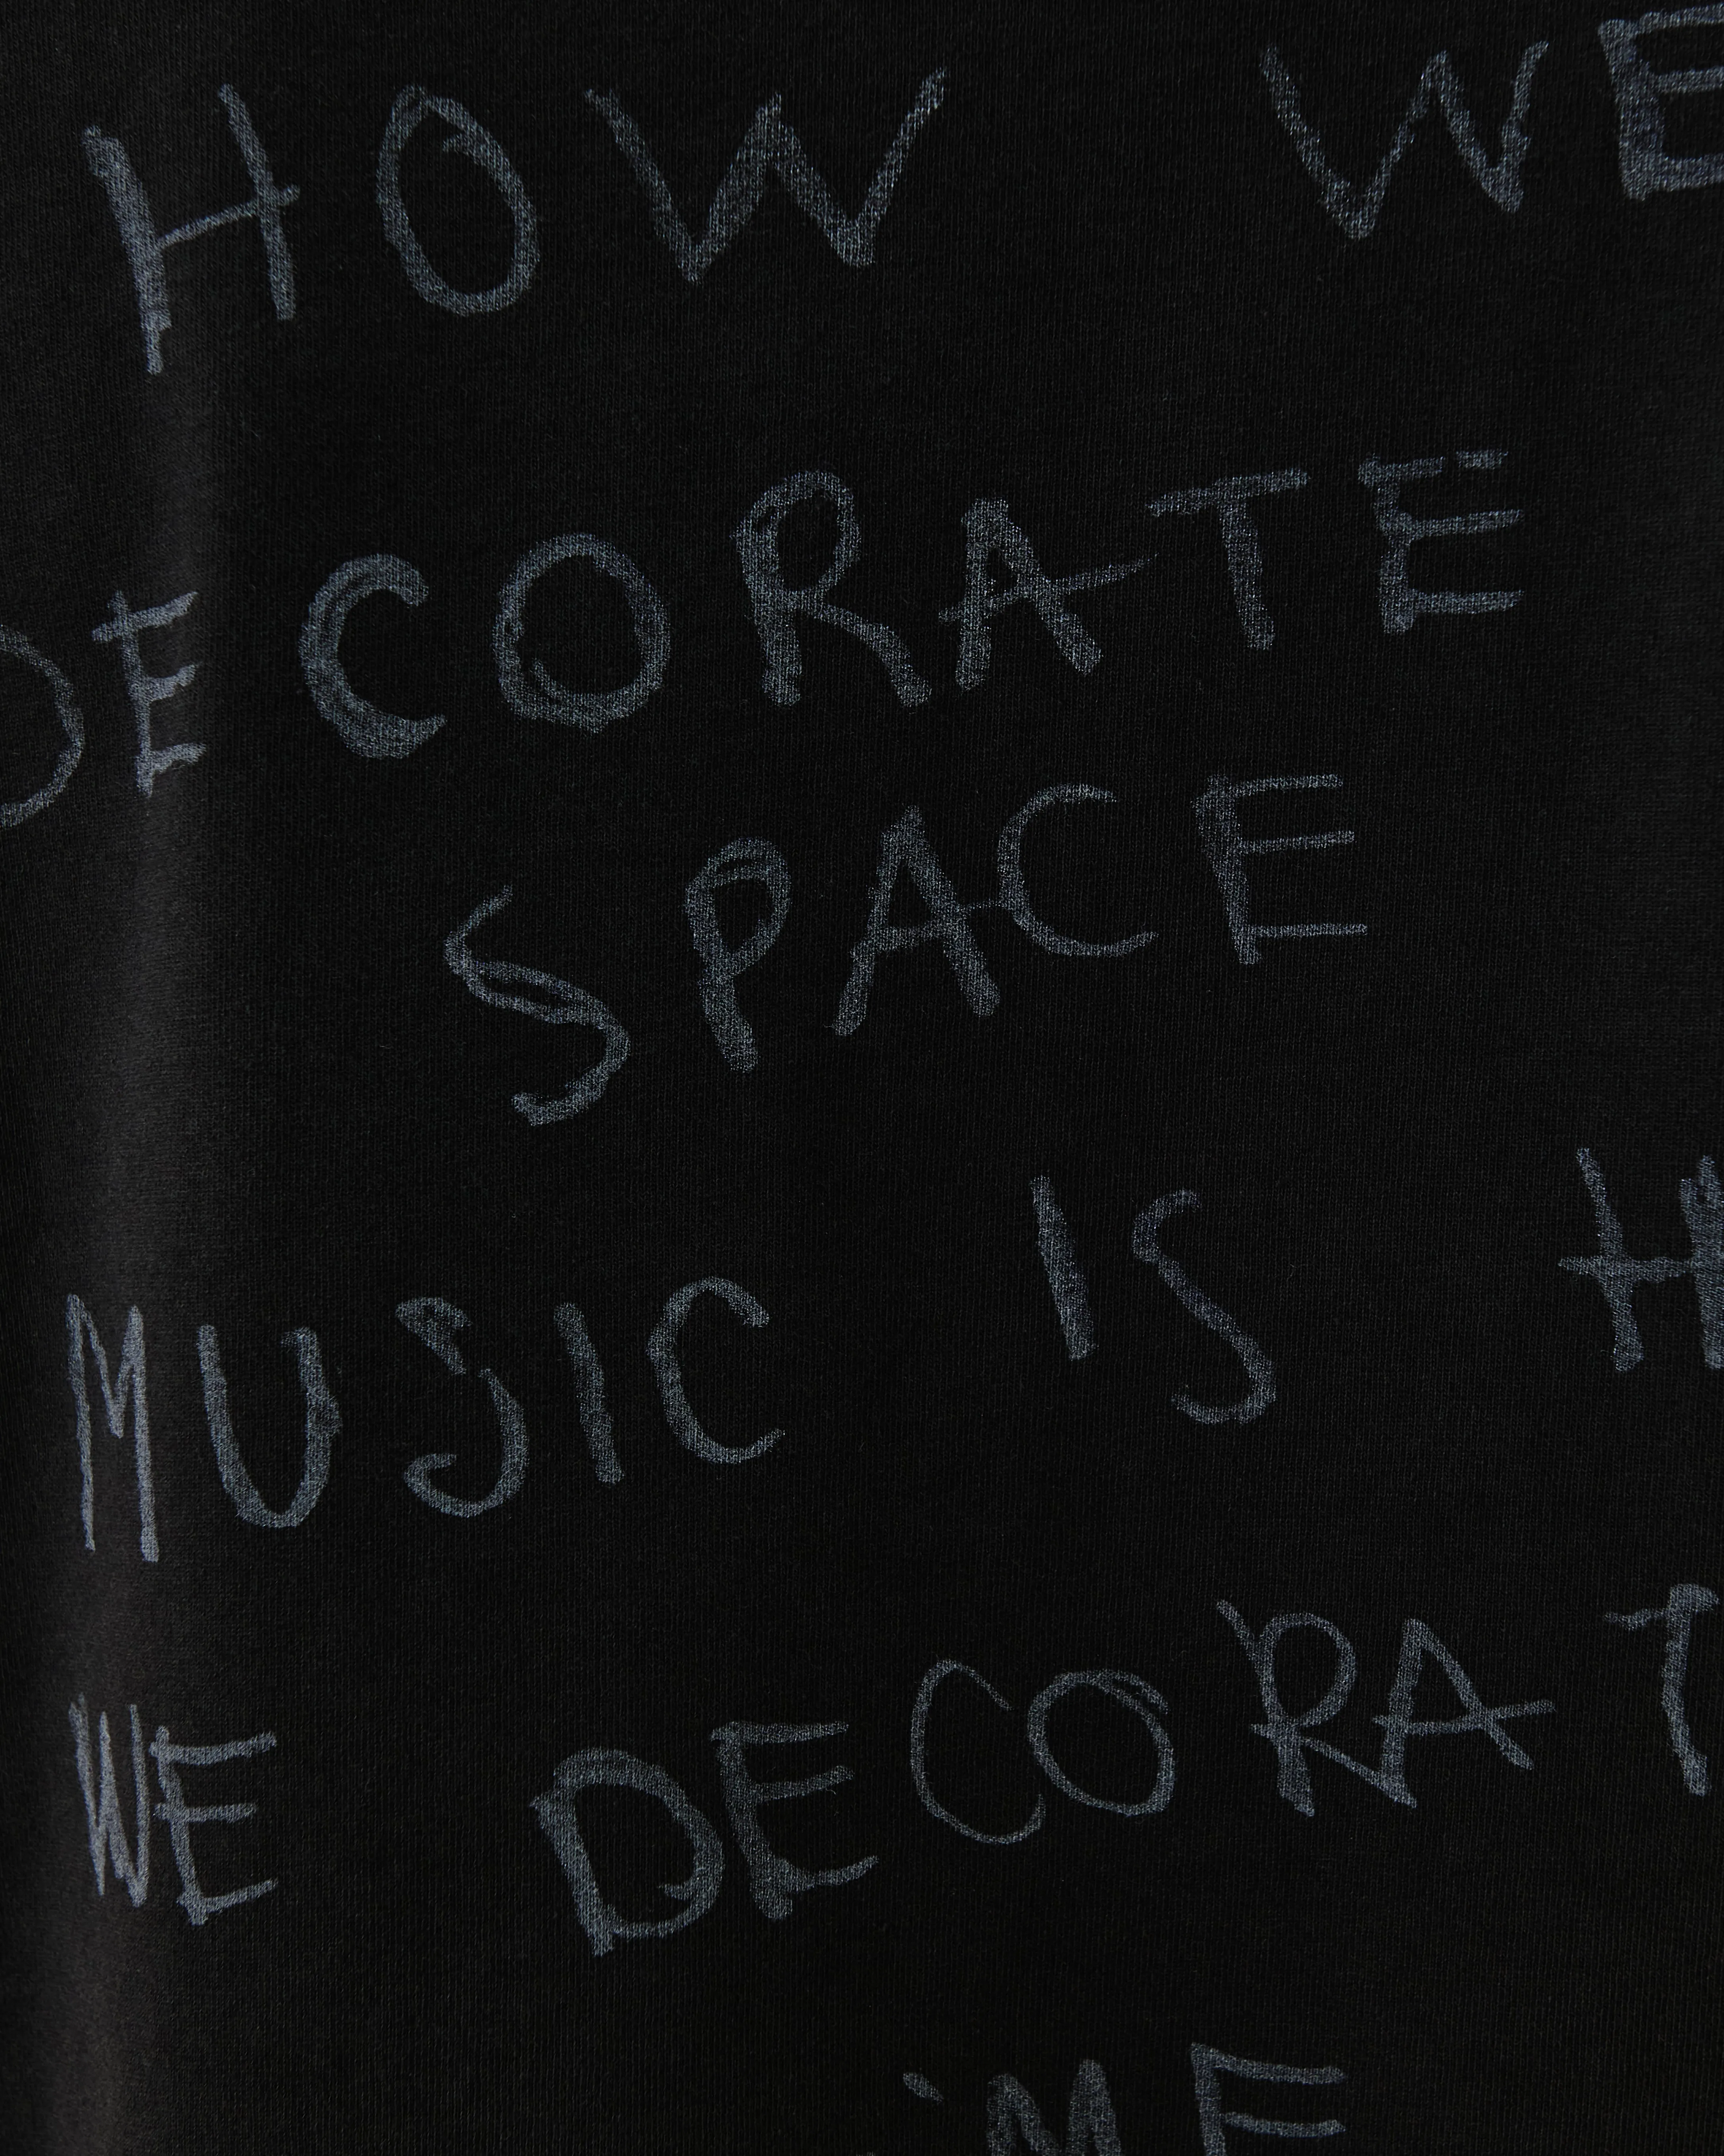 HOW WE
DECORATE
SPACE
MUSIC IS
WE DECORAT